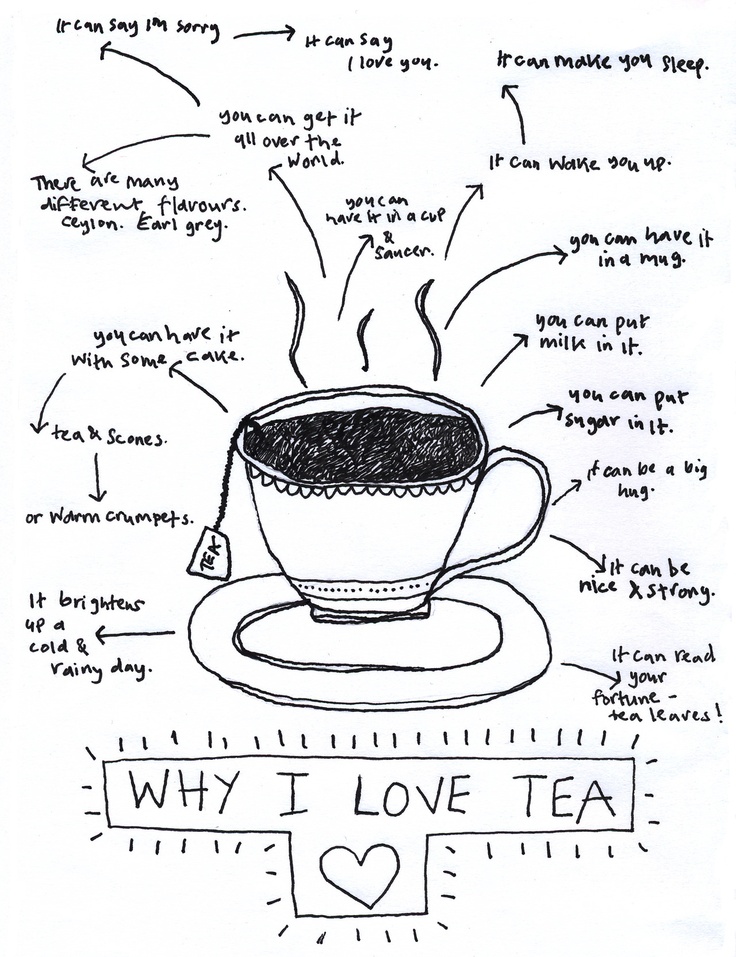 It can say I'm sorry
It can say
I love you.
It can make you sleep.
you can get it
all over the
World.
It can wake you up.
There are many
different flavours.
Ceylon. Earl grey.
you can
have it in a cup
&
saucer.
you can have it
in a mug.
you can put
milk in it.
you can have it
with some cake.
you can put
sugar in it.
tea & scones.
it can be a big
hug.
or warm crumpets.
TEA
It can be
nice & strong.
It brightens
up a
cold &
rainy day.
It can read
your
fortune -
tea leaves!
WHY I LOVE TEA